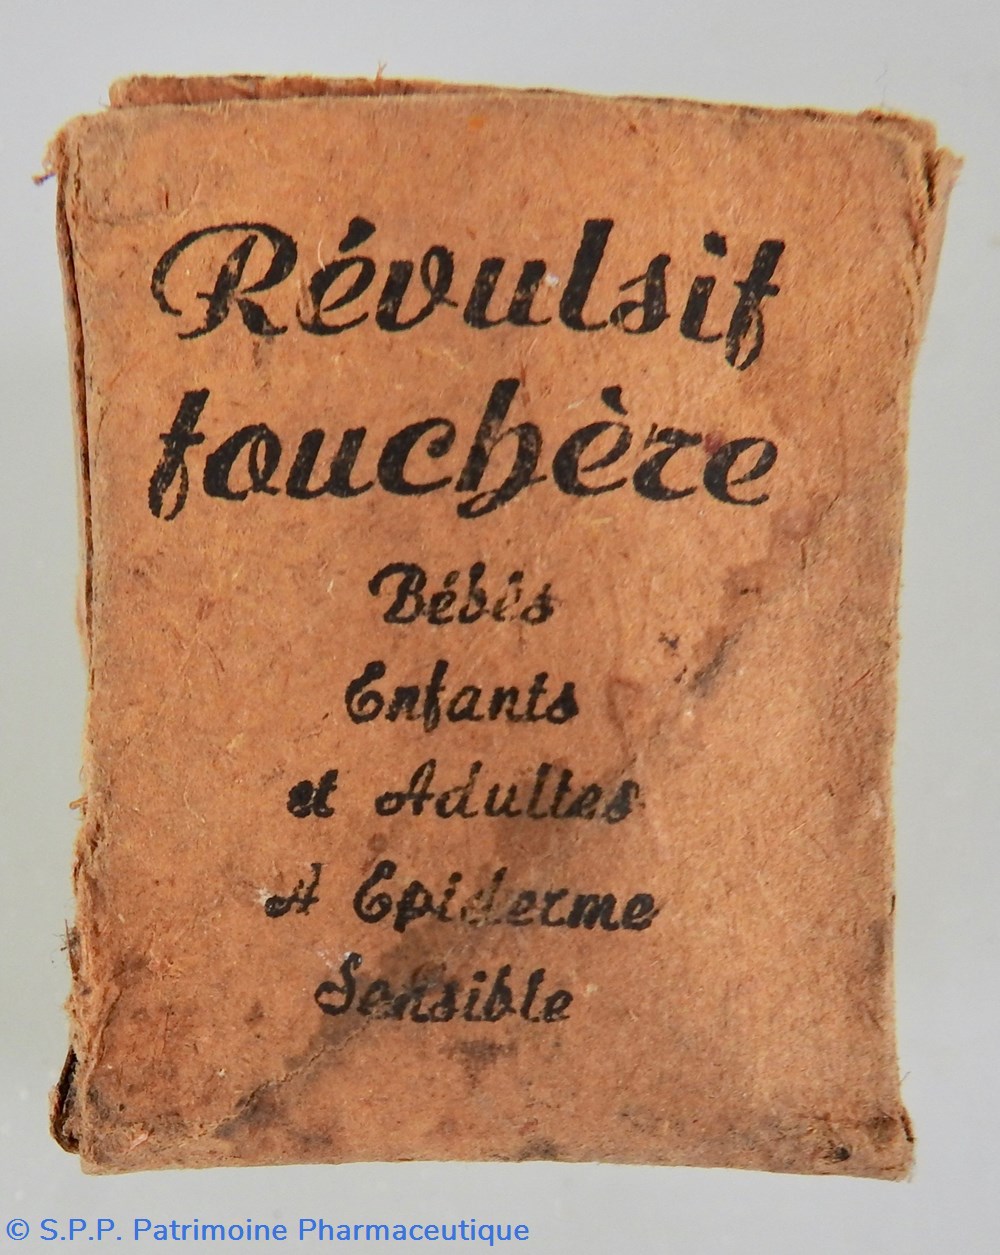 Révulsif
fouchère
Bébés
Enfants
et Adultes
A Epiderme
Sensible
© S.P.P. Patrimoine Pharmaceutique